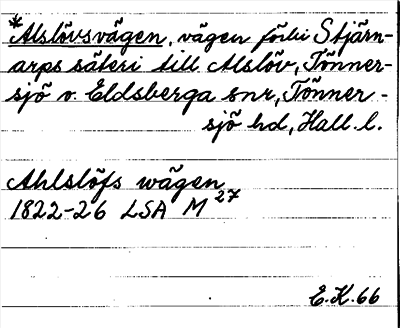 *Alslövsvägen, vägen förbi Stjärn-
arps säteri till Alslöv, Tönner-
sjö o. Eldsberga snr, Tönner-
sjö hd, Hall. l.
Ahlslöfs wägen
1822-26 LSA M 27
E.K. 66